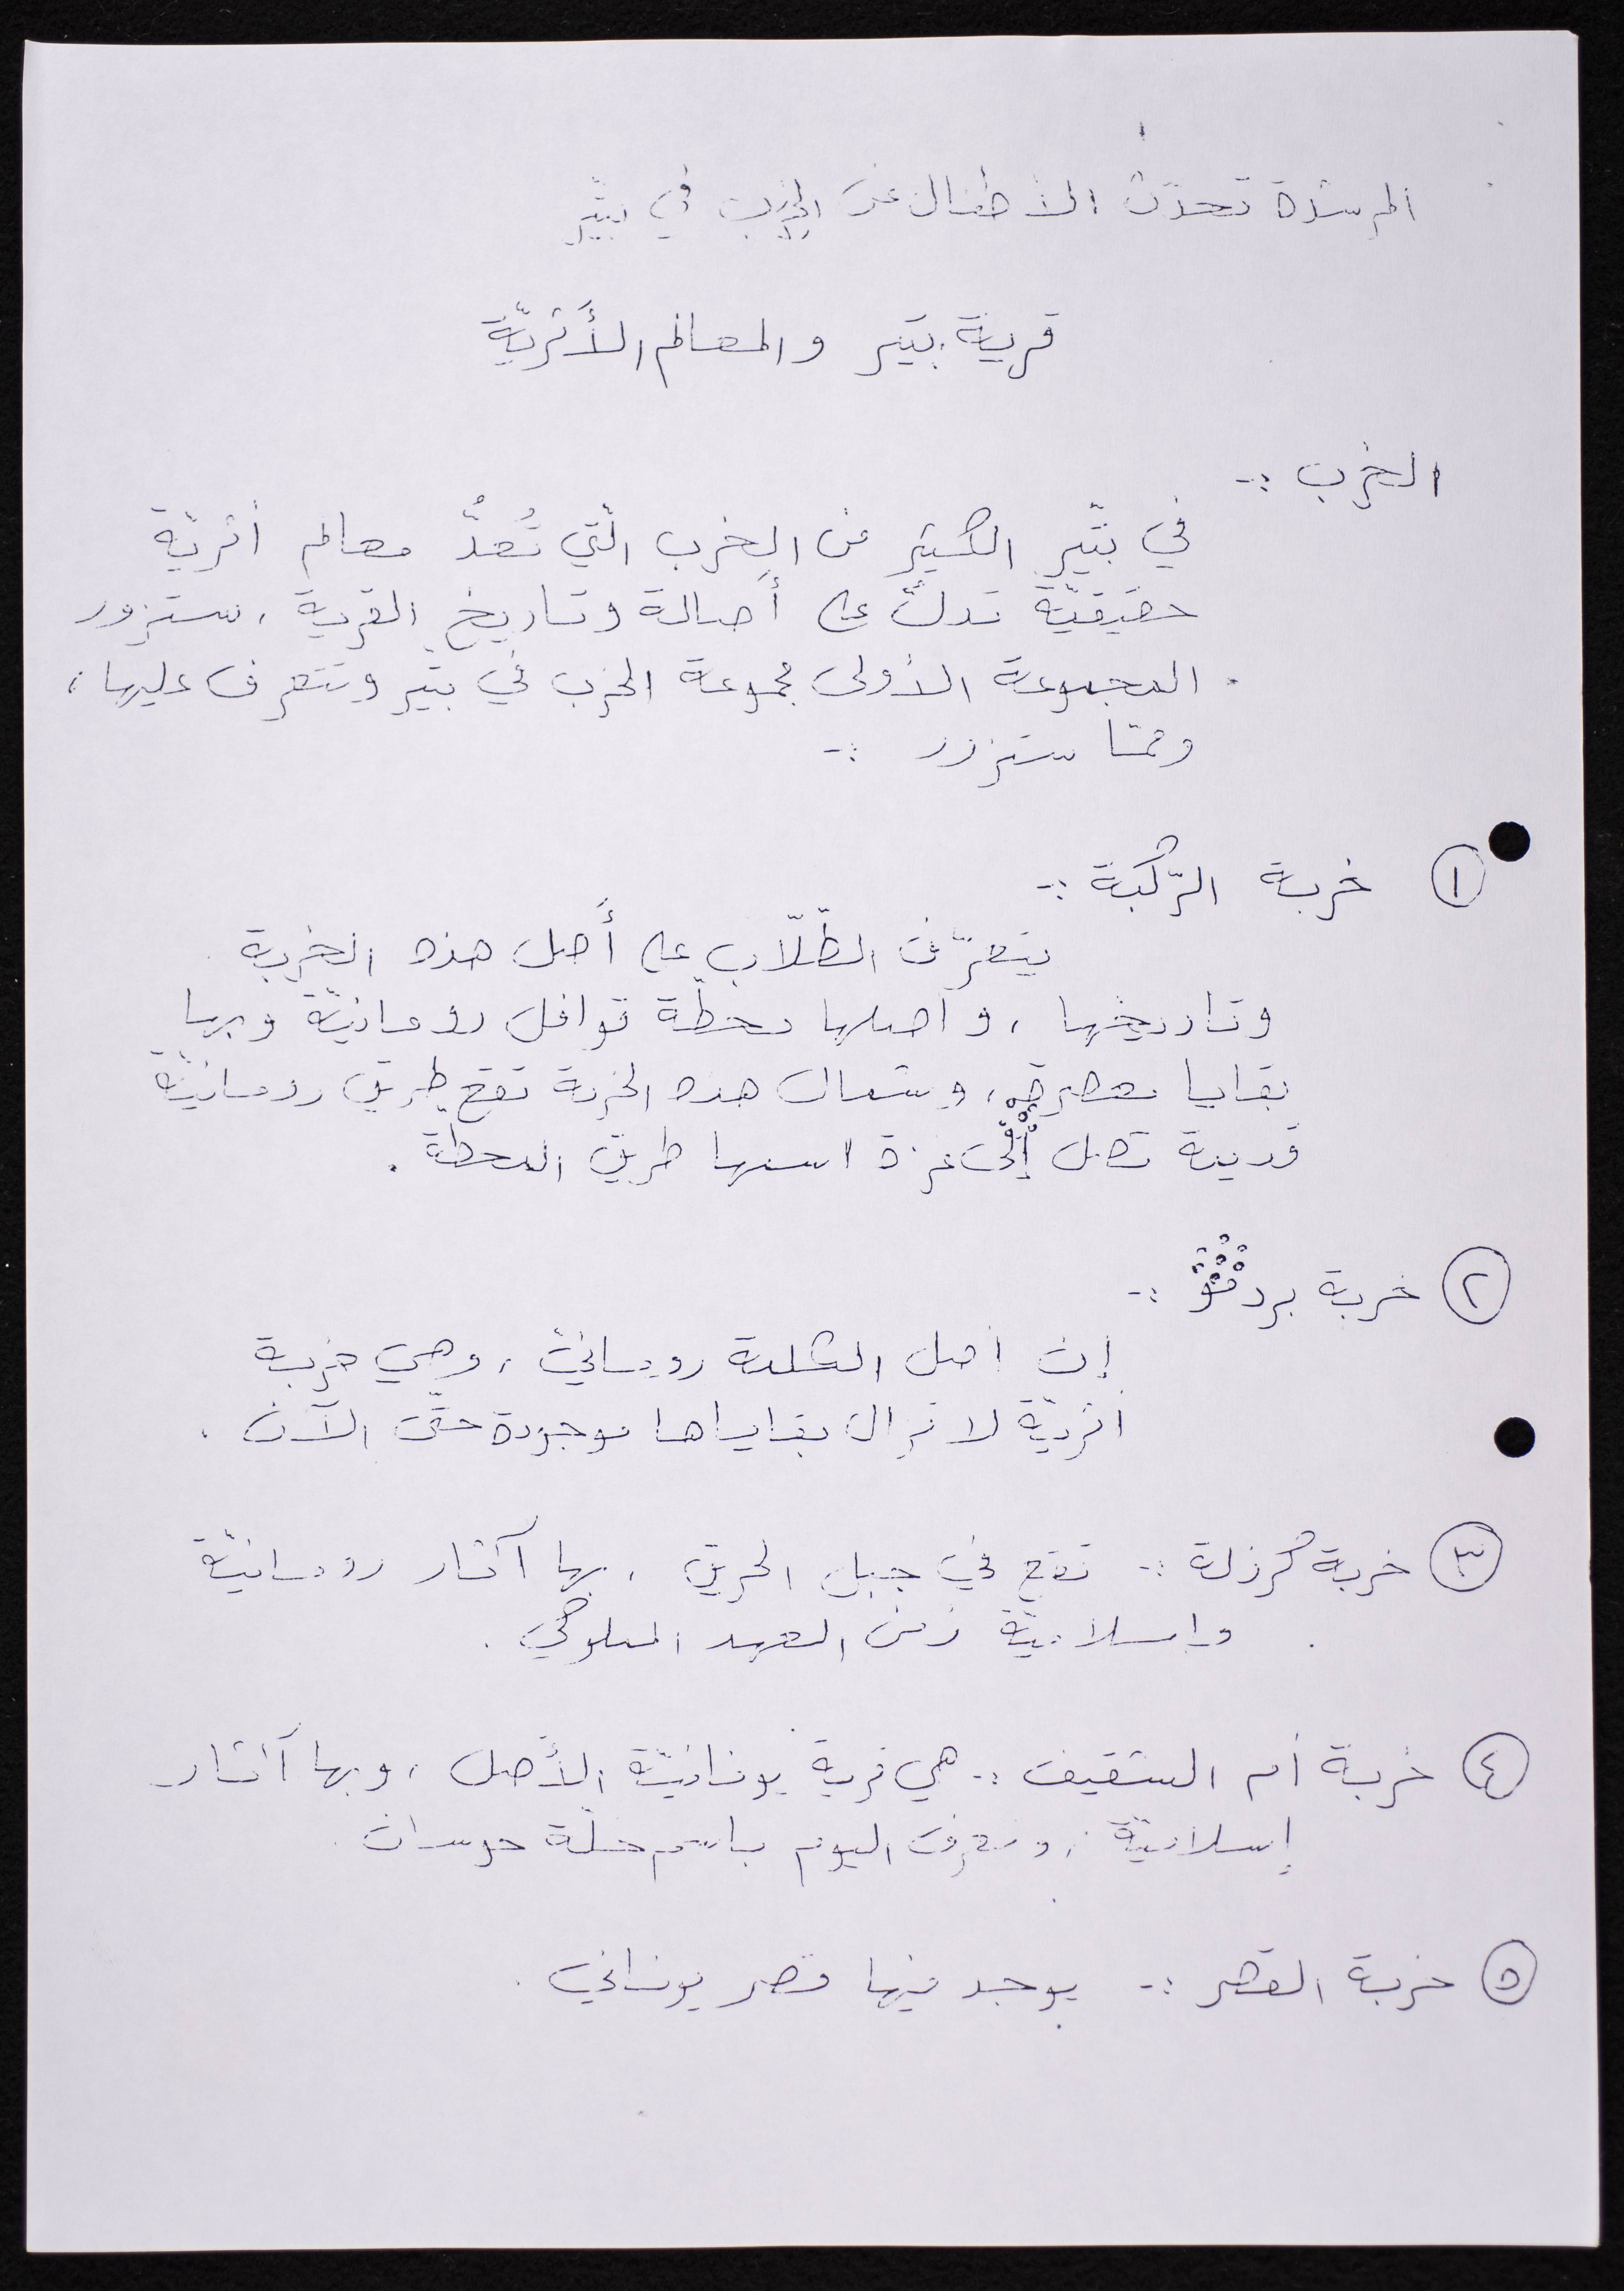 المرشدة تحدّث الأطفال عن الخِرَب في بتّير
قرية بتير والمعالم الأَثريّة
الخِرب :-
في بتّير الكثير من الخِرب الّتي تُعدُّ معالم أثريّة
حقيقيّة تدلّ على أَصالة وتاريخ القرية ، ستزور
المجموعة الأولى مجموعة الخرب في بتّير وتتعرف عليها ،
وممّا ستزور :-
١ خربة الرّكبة :-
يتعرّف الطّلّاب على أَصل هذه الخربة
وتاريخها ، وأصلها محطّة قوافل رومانيّة وبها
بقايا معصرة ، وشمال هذه الخربة تقع طريق رومانيّة
قديمة تصل إلى غزة اسمها طريق المحطة .
٢ خربة :-
إن أصل الكلمة رومانيّ ، وهي خربة
أثريّة لا تزال بقاياها موجودة حتّى الآن .
٣ خربة كرزلة :- تقع في جبل الخريق ، بها آثار رومانيّة
وإسلاميّة زمن العهد المملوكي .
٤ خربة أم الشقيف :- هي قرية يونانيّة الأَصل ، وبها آثار
إسلاميّة ، وتعرف اليوم باسم حلّة حوسان .
٥ خربة القصر :- يوجد فيها قصر يوناني .